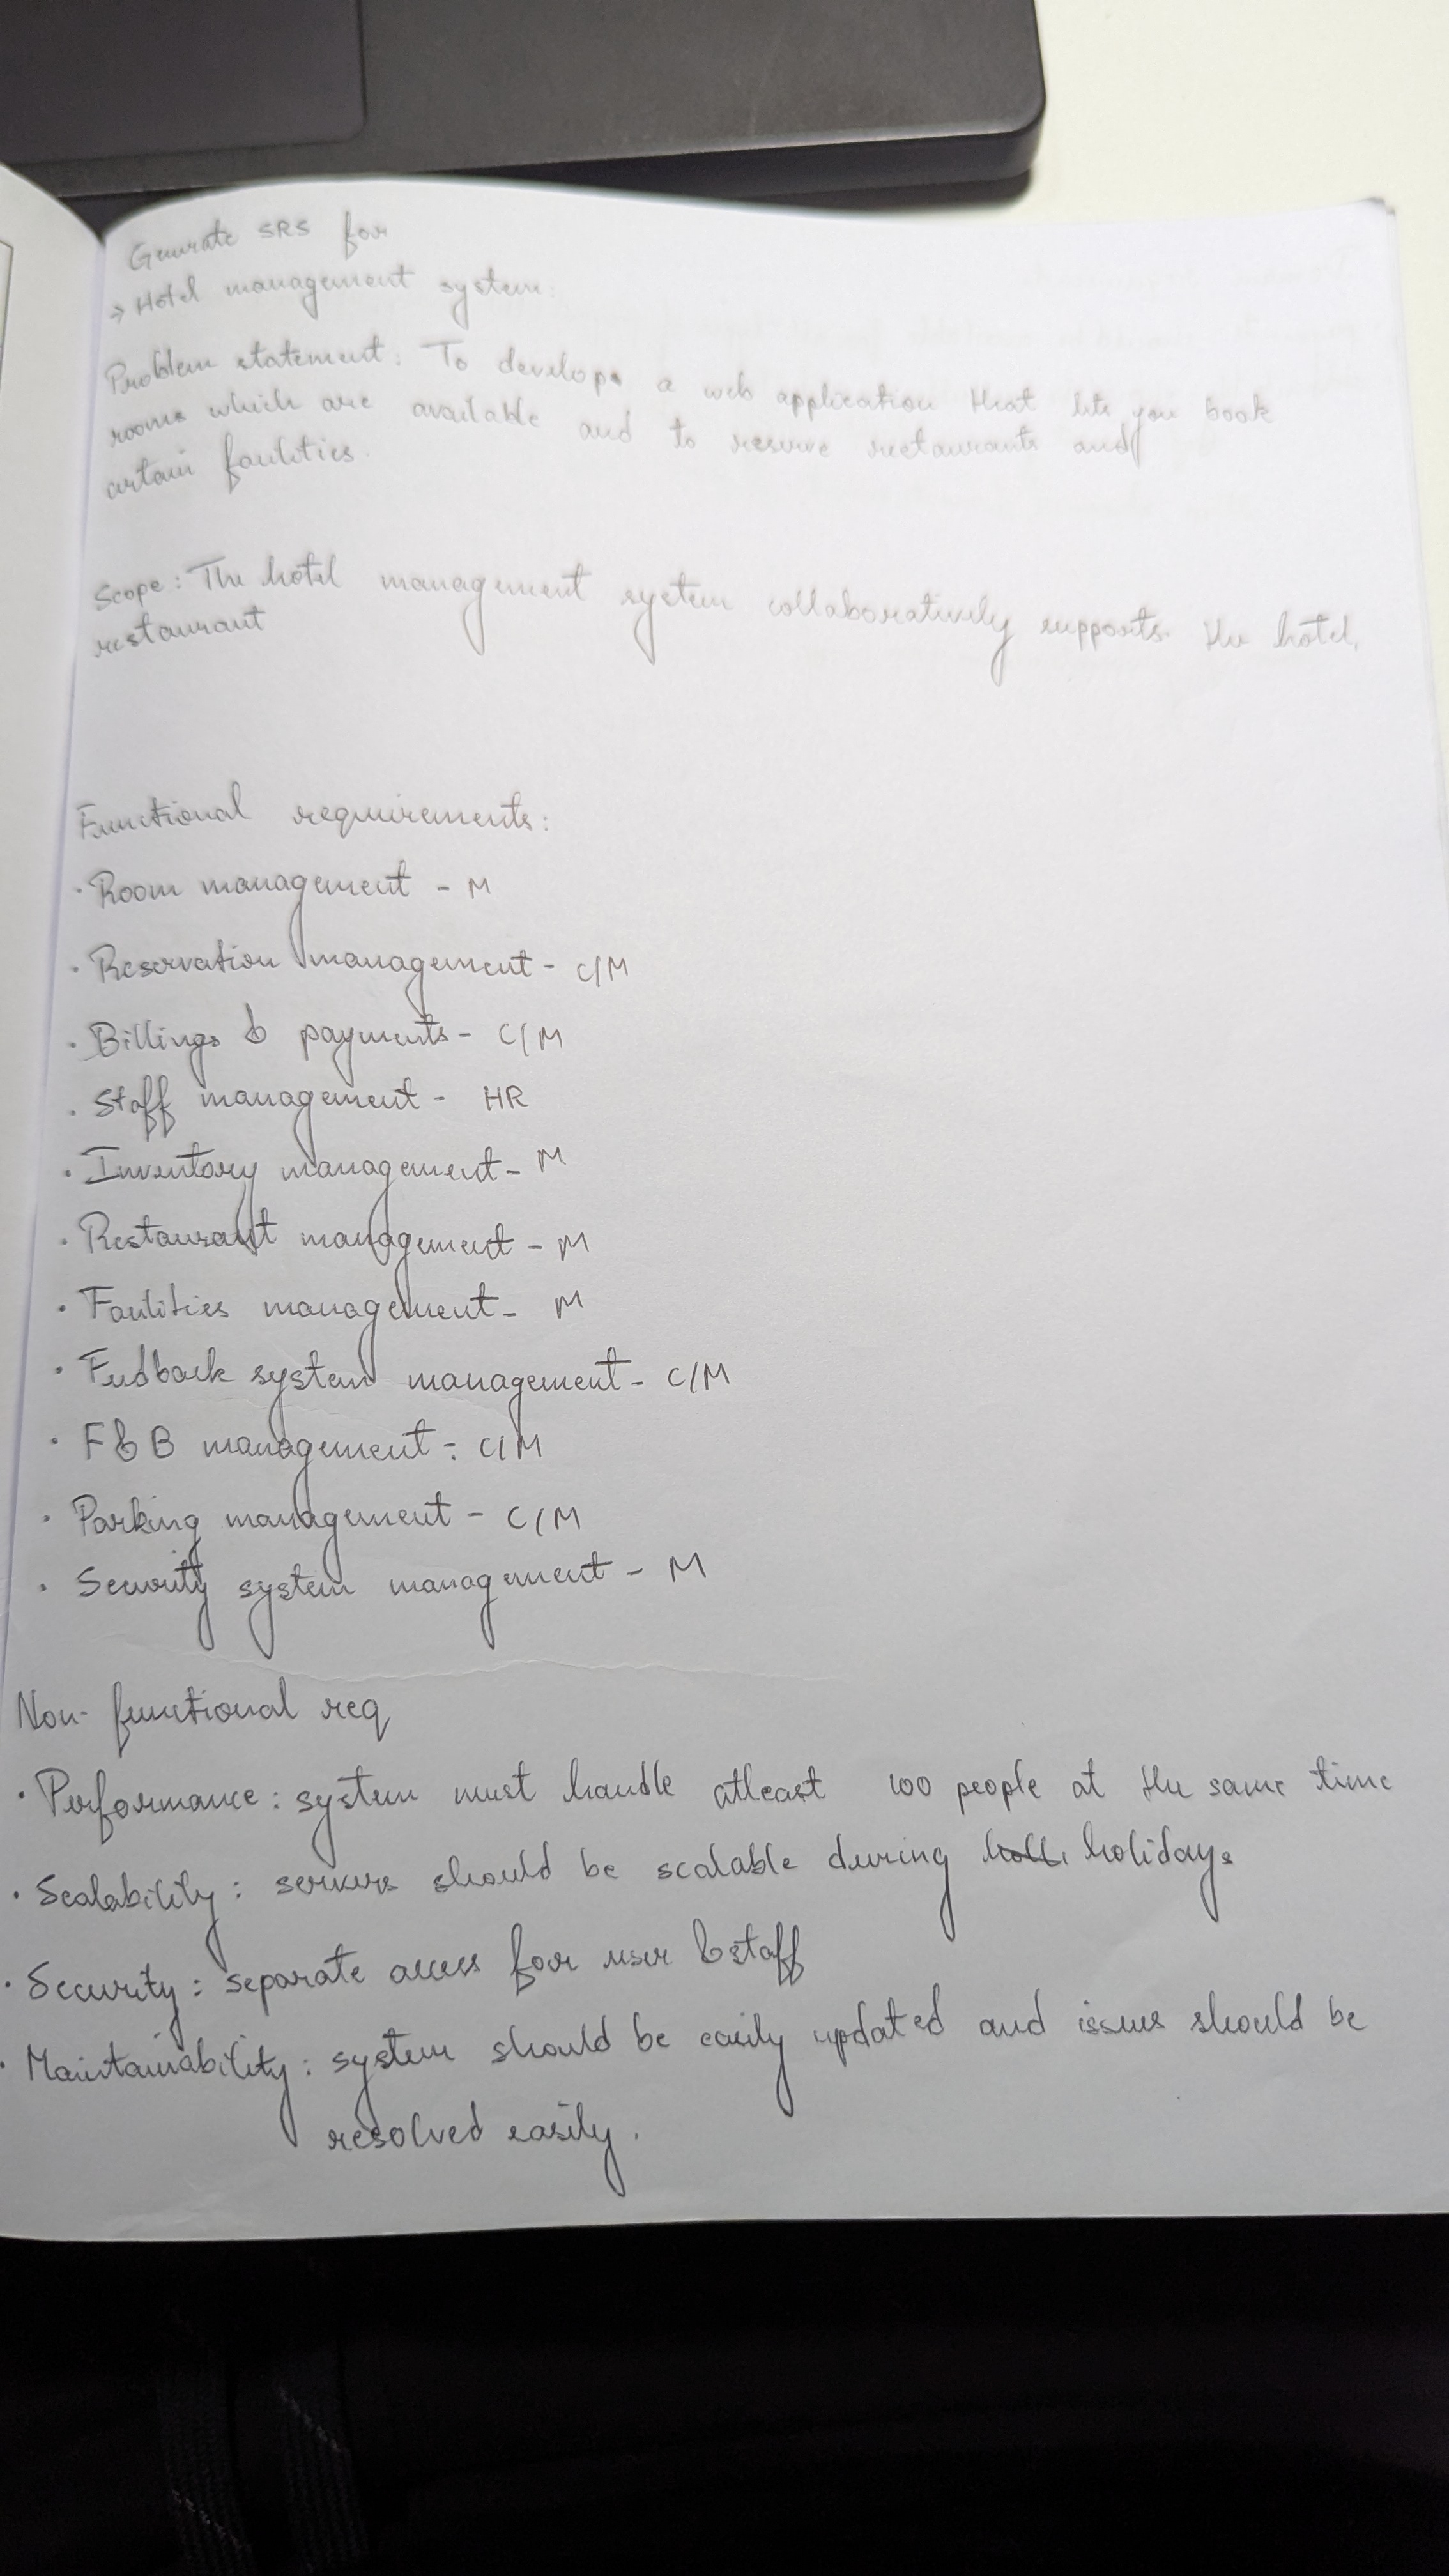 Generate SRS for
→ Hotel management system:
Problem statement: To develop a web application that lets you book
rooms which are available and to reserve restaurants and
certain facilities.
Scope: The hotel management system collaboratively supports the hotel,
restaurant
Functional requirements:
• Room management - M
• Reservation management - C/M
• Billings & payments - C/M
• Staff management - HR
• Inventory management - M
• Restaurant management - M
• Facilities management - M
• Feedback system management - C/M
• F&B management - C/M
• Parking management - C/M
• Security system management - M
Non-functional req
• Performance: system must handle atleast 100 people at the same time
• Scalability: servers should be scalable during holidays
• Security: separate access for user & staff
• Maintainability: system should be easily updated and issues should be
resolved easily.